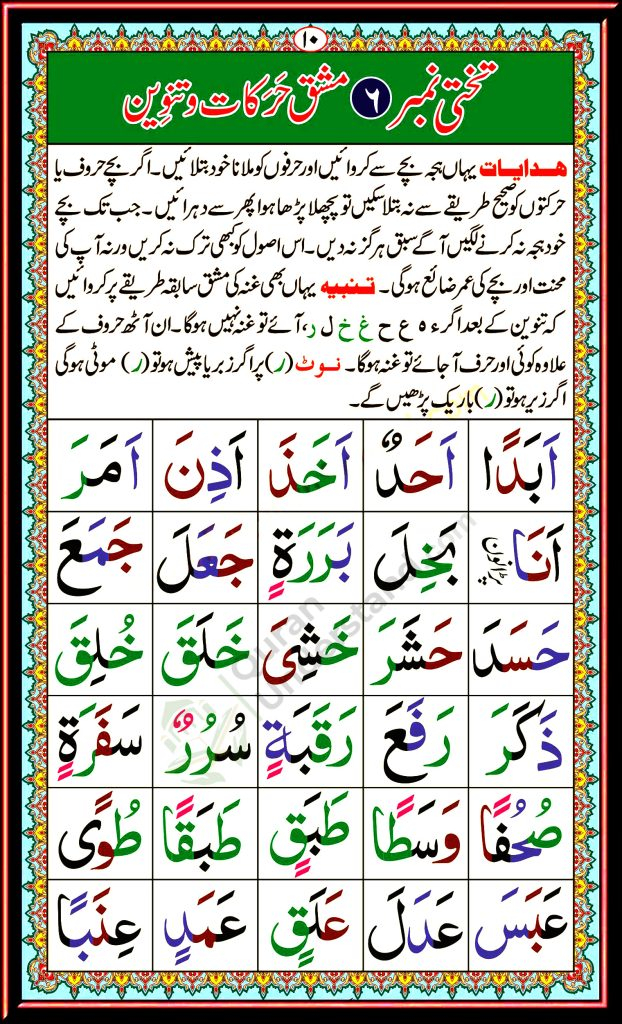 ۱۰
تختی نمبر ۶ مشق حَرَکات و تنوِین
هدایات یہاں ہجہ بچے سے کروائیں اور حرفوں کو ملانا خود بتلائیں۔ اگر بچے حروف یا
حرکتوں کو صحیح طریقے سے نہ بتلا سکیں تو پچھلا پڑھا ہوا پھر سے دہرائیں۔ جب تک بچے
خود ہجہ نہ کرنے لگیں آگے سبق ہرگز نہ دیں۔ اس اصول کو کبھی ترک نہ کریں ورنہ آپ کی
محنت اور بچے کی عمر ضائع ہوگی۔ تنبیہ یہاں بھی غنہ کی مشق سابقہ طریقے پر کروائیں
کہ تنوین کے بعد اگر ء ہ ع ح غ خ ل ر، آئے تو غنہ نہیں ہوگا۔ ان آٹھ حروف کے
علاوہ کوئی اور حرف آجائے تو غنہ ہوگا۔ نوٹ (ر) پر اگر زبر یا پیش ہو تو (ر) موٹی ہوگی
اگر زیر ہو تو (ر) باریک پڑھیں گے۔
اَبَدًا اَحَدٌ اَخَذَ اَذِنَ اَمَرَ
اَنَا بَخِلَ بَرَرَةٍ جَعَلَ جَمَعَ
حَسَدَ حَشَرَ خَشِیَ خَلَقَ خُلِقَ
ذَکَرَ رَفَعَ رَقَبَةٍ سُرُرٌ سَفَرَةٍ
صُحُفًا وَسَطًا طَبَقٍ طَبَقًا طُوًی
عَبَسَ عَدَلَ عَلَقٍ عَمَدٍ عِنَبًا